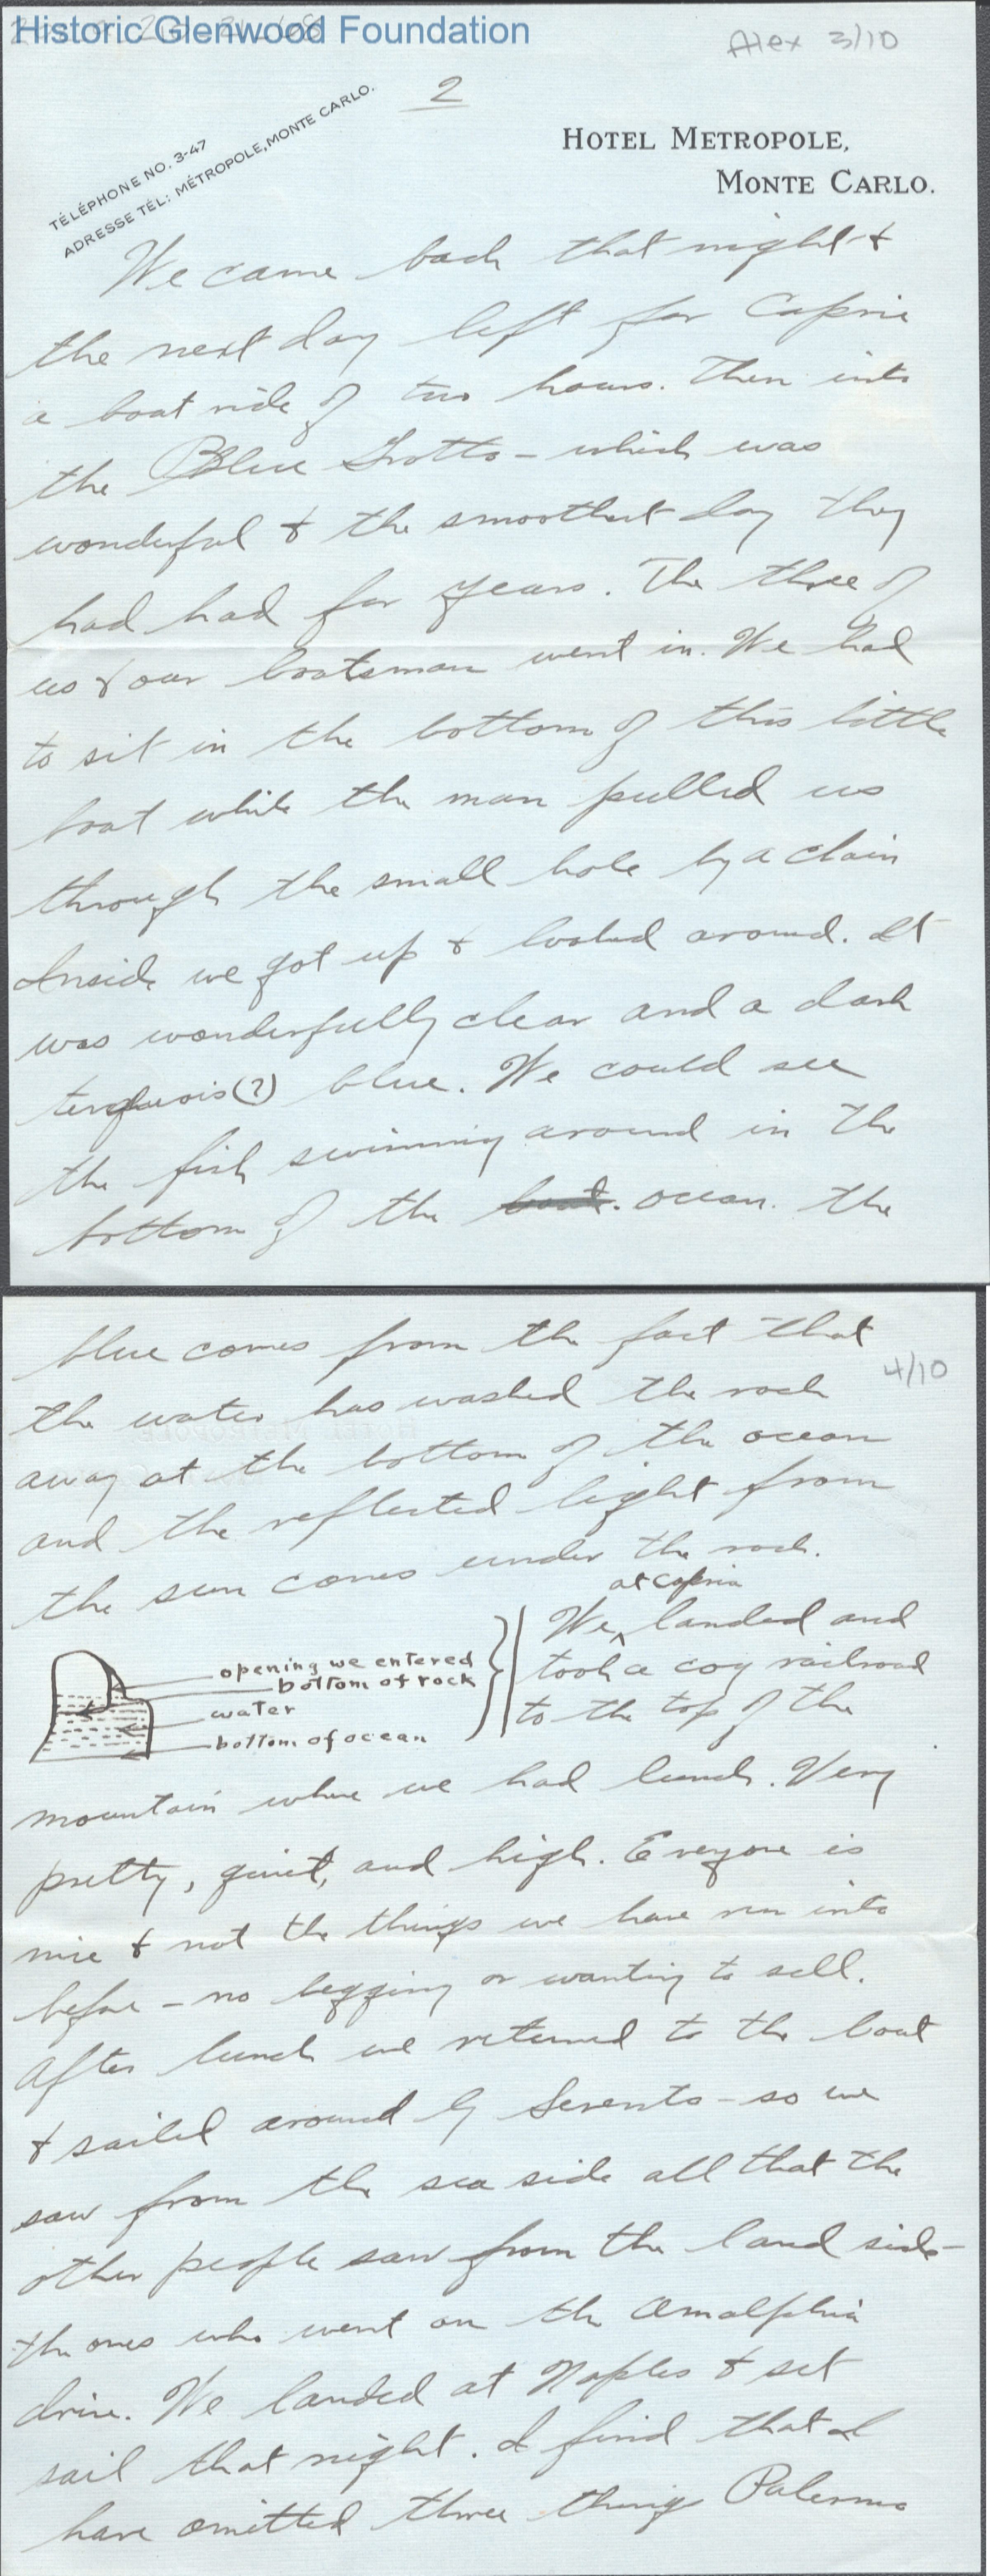 Historic Glenwood Foundation
Alex 3/10
2
TÉLÉPHONE NO. 3-47
ADRESSE TÉL: MÉTROPOLE, MONTE CARLO.
HOTEL METROPOLE,
MONTE CARLO.
We came back that night &
the next day left for Caprie
a boat ride of two hours. Then into
the Blue Grotto - which was
wonderful & the smoothest day they
had had for years. The three of
us & our boatsman went in. We had
to sit in the bottom of this little
boat while the man pulled us
through the small hole by a chain
Inside we got up & looked around. It
was wonderfully clear and a dark
terquois(?) blue. We could see
the fish swimming around in the
bottom of the boat. ocean. the
blue comes from the fact that
4/10
the water has washed the rock
away at the bottom of the ocean
and the reflected light from
the sun comes under the rock.
at Caprie
We ^ landed and
took a cog railroad
to the top of the
opening we entered
bottom of rock
water
bottom of ocean
mountain where we had lunch. Very
pretty, quiet, and high. Everyone is
nice & not the things we have run into
before - no begging or wanting to sell.
After lunch we returned to the boat
& sailed around by Serento - so we
saw from the sea side all that the
other people saw from the land side -
the ones who went on the Amalphia
drive. We landed at Naples & set
sail that night. I find that I
have omitted three things Palermo